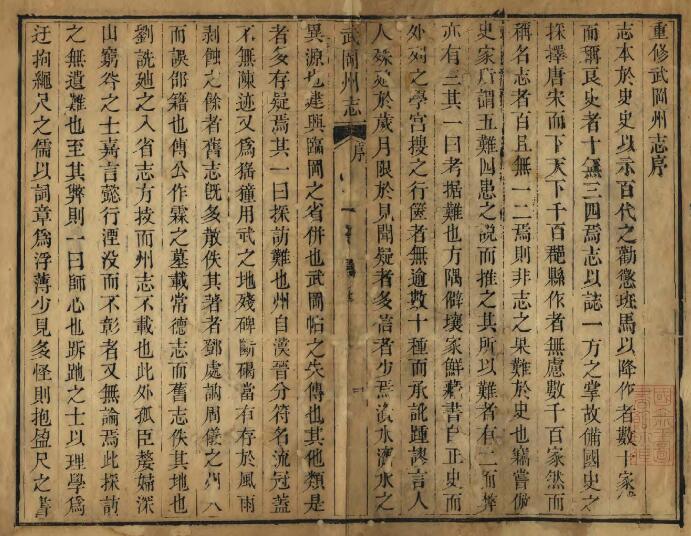 重修武岡州志序
志本於史史以示百代之勸懲班馬以降作者數十家
而稱良史者十無三四焉志以誌一方之掌故備國史之
採擇唐宋而下天下千百郡縣作者無慮數千百家然而
稱名志者百且無一二焉則非志之果難於史也竊嘗倣
史家所謂五難四患之說而推之其所以難者有二而弊
亦有三其一曰考据難也方隅僻壤家鮮藏書自正史而
外列之學宮搜之行篋者無逾數十種而承訛踵謬言人
人殊處於歲月限於見聞疑者多信者少焉水濟水之
武岡州志
序
一
異源也建興臨岡之省併也武岡帖之失傳也其他類是
者多存疑焉其一曰採訪難也州自漢晉分符名流冠蓋
不無陳迹又為猺獞用武之地殘碑斷碣當有存於風雨
剥蝕之餘者舊志旣多散佚其著者鄧處訥周儀之州人
而誤邵籍也傅公作霖之墓載常德志而舊志佚其地也
劉詵廸之入省志方技而州志不載也此外孤臣嫠婦深
山窮谷之士嘉言懿行湮没而不彰者又無論焉此採訪
之無遺難也至其弊則一曰師心也跅跎之士以理學為
迂拘繩尺之儒以詞章為浮薄少見多怪則抱盈尺之書